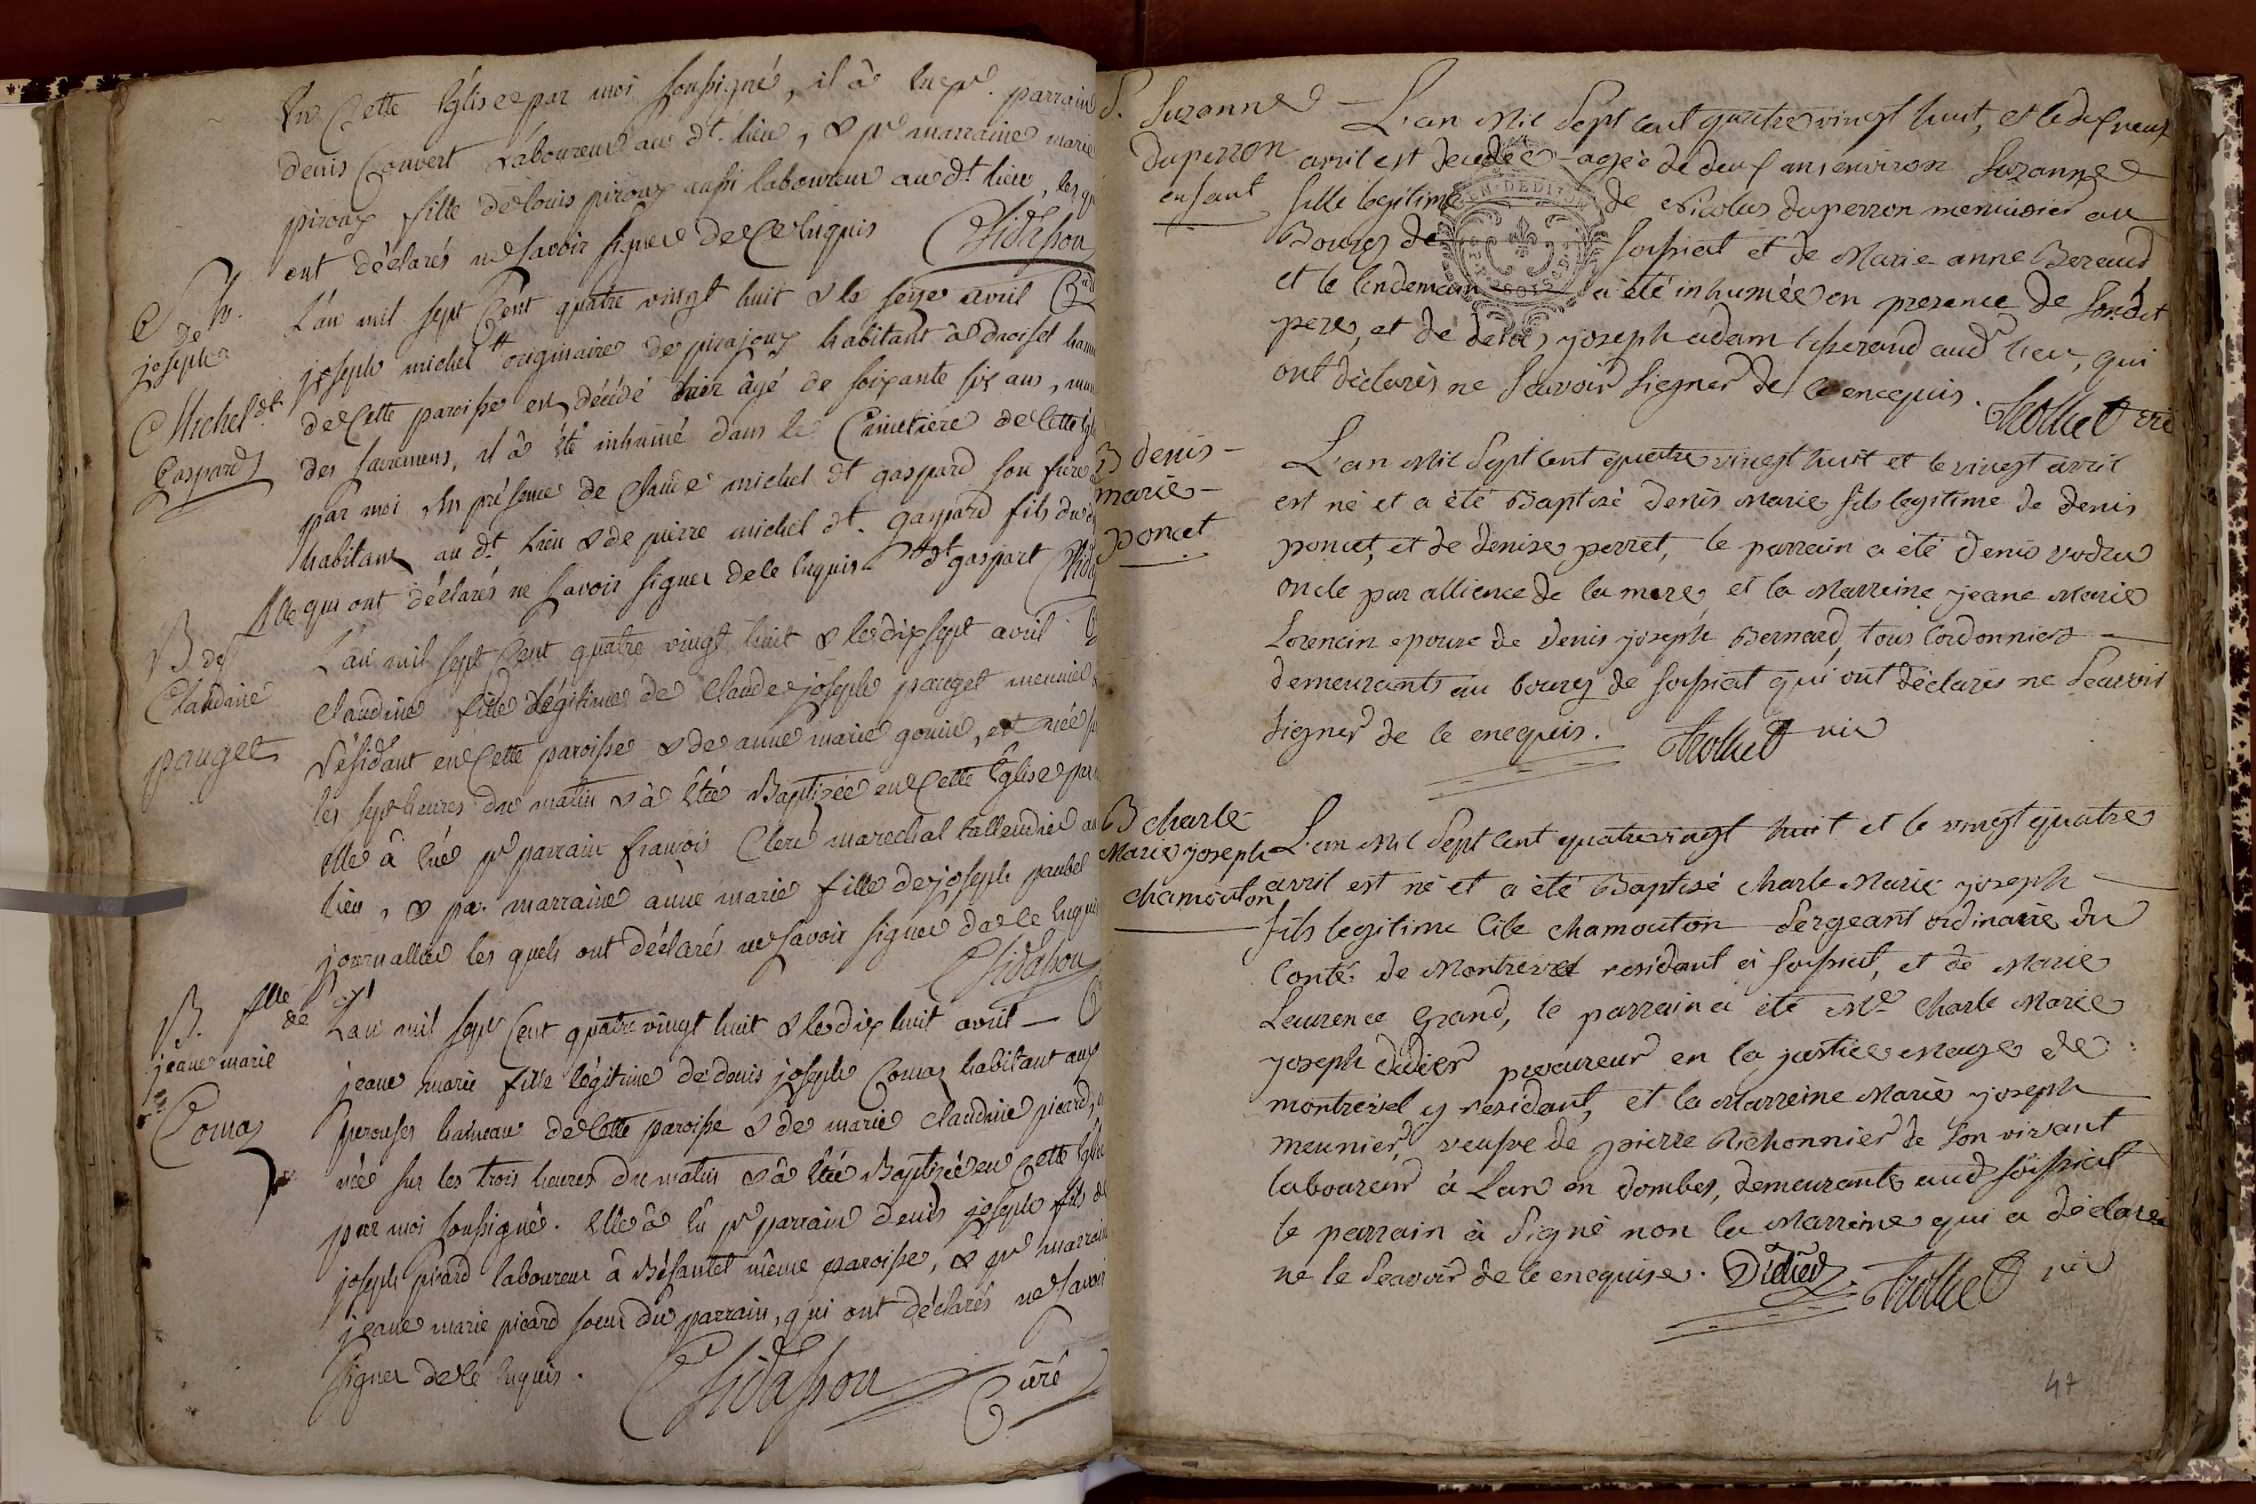 En Cette Eglise par moi soussigné, il à eu pr. parrain
denis Convert laboureur au dt. lieu, & pr marraine marie
piroux fille de louis piroux aussi laboureur au dt lieu, les qu
ont déclarés ne savoir signer de ce Enquis Chidasson
Sh.
de
joseph
Michel dt
Gaspard
L'an mil sept Cent quatre vingt huit & le seize avril
joseph michel dt originaire de pirajoux habitant à droiset ham
de Cette paroisse est décédé hier âgé de soixante six ans, muni
des sacremens, il à été inhumé dans le Cimetiere de Cette Egl
par moi En présence de Claude michel dt gaspard son frere
habitant au dt Lieu & de pierre michel dt. gaspard fils du
qui ont déclarés ne savoir signer de ce Enquis dt gaspart
B. de
Claudine
pauget
L'an mil sept Cent quatre vingt huit & le dix sept avril
Claudine fille légitime de Claude joseph pauget meunier
résidant en Cette paroisse & de anne marie gouin, est née
les sept heures du matin & à été Baptizée en Cette Eglise par
elle à eue pr parrain françois Clerc marechal tallendier au
lieu, & pr. marraine anne marie fille de joseph paubel
journallier les quels ont déclarés ne savoir signer de ce Enquis
Chidasson
B. fille
de
jeane marie
Comaz
L'an mil sept Cent quatre vingt huit & le dix huit avril
jeane marie fille légitime de denis joseph Comaz habitant aux
perouses hameau de Cette paroisse & de marie Claudine picard,
née sur les trois heures du matin & à été Baptizée en Cette Eglise
par moi soussigné. Elle à eu pr parrain denis joseph fils de
joseph picard laboureur à Bésantel même paroisse, & pr marrain
jeane marie picard soeur du parrain, qui ont déclarés ne savoir
signer de ce Enquis. Chidasson Curé
S. Suzanne
duperron
enfant
L'an Mil Sept cent quatre vingt huit, et le dix neuf
avril est decedée agée de deux ans environ Suzanne
fille legitime de Nicolas duperron menuisier au
Bourg de foissiat et de Marie anne Beraud
et le lendemain a été inhumée en presence de sondit
pere, et de joseph adam tisserand aud lieu, qui
ont déclarés ne sçavoir signer de ce enequis. Trolliet vic
B denis
marie
poncet
L'an Mil Sept cent quatre vingt huit et le vingt avril
est né et a été Baptisé denis Marie fils legitime de denis
poncet, et de denise perret, le parrain a été denis vodru
oncle par alliance de la mere, et la Marreine jeane Marie
Lorencin epouse de denis joseph Bernard, tous Cordonniers
demeurants au bourg de foissiat qui ont déclarés ne Sçavoir
signer de ce enequis. Trolliet vic
B charle
Marie joseph
chamouton
L'an Mil Sept cent quatre vingt huit et le vingt quatre
avril est né et a été Baptisé charle Marie joseph
fils legitime Cile chamouton Sergeant ordinaire du
Conté de Montrevel residant à foissiat, et de Marie
Laurence Grand, le parrain a été Mr Charle Marie
joseph didier procureur en la justice Mage de
montrevel y residant, et la Marreine Marie joseph
meunier, veufve de pierre Richonnier de son vivant
laboureur à Lan en dombes, demeurante aud foissiat
le parrain à signé non la Marreine qui a déclaré
ne le Sçavoir de ce enequise. Didier Trolliet vic
47